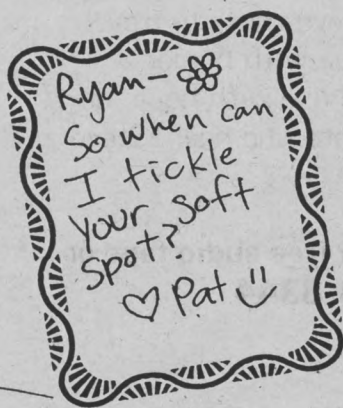 Ryan-
So when can
I tickle
your soft
spot?
♡ Pat